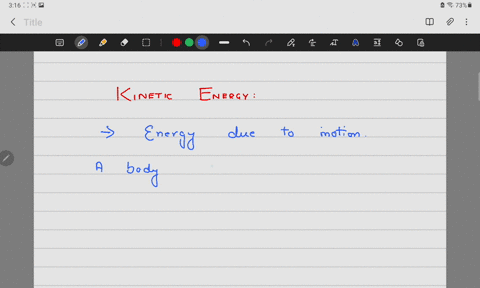 3:16
73%
Title
KINETIC ENERGY:
→ Energy due to motion.
A body